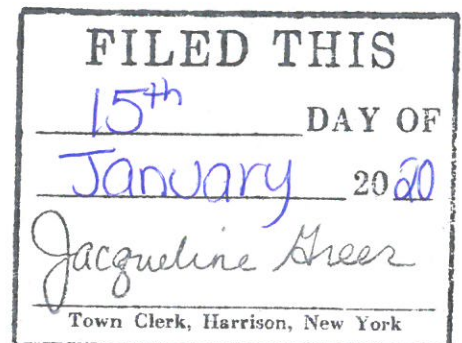 FILED THIS
15th DAY OF
January 2020
Jacqueline Greer
Town Clerk, Harrison, New York